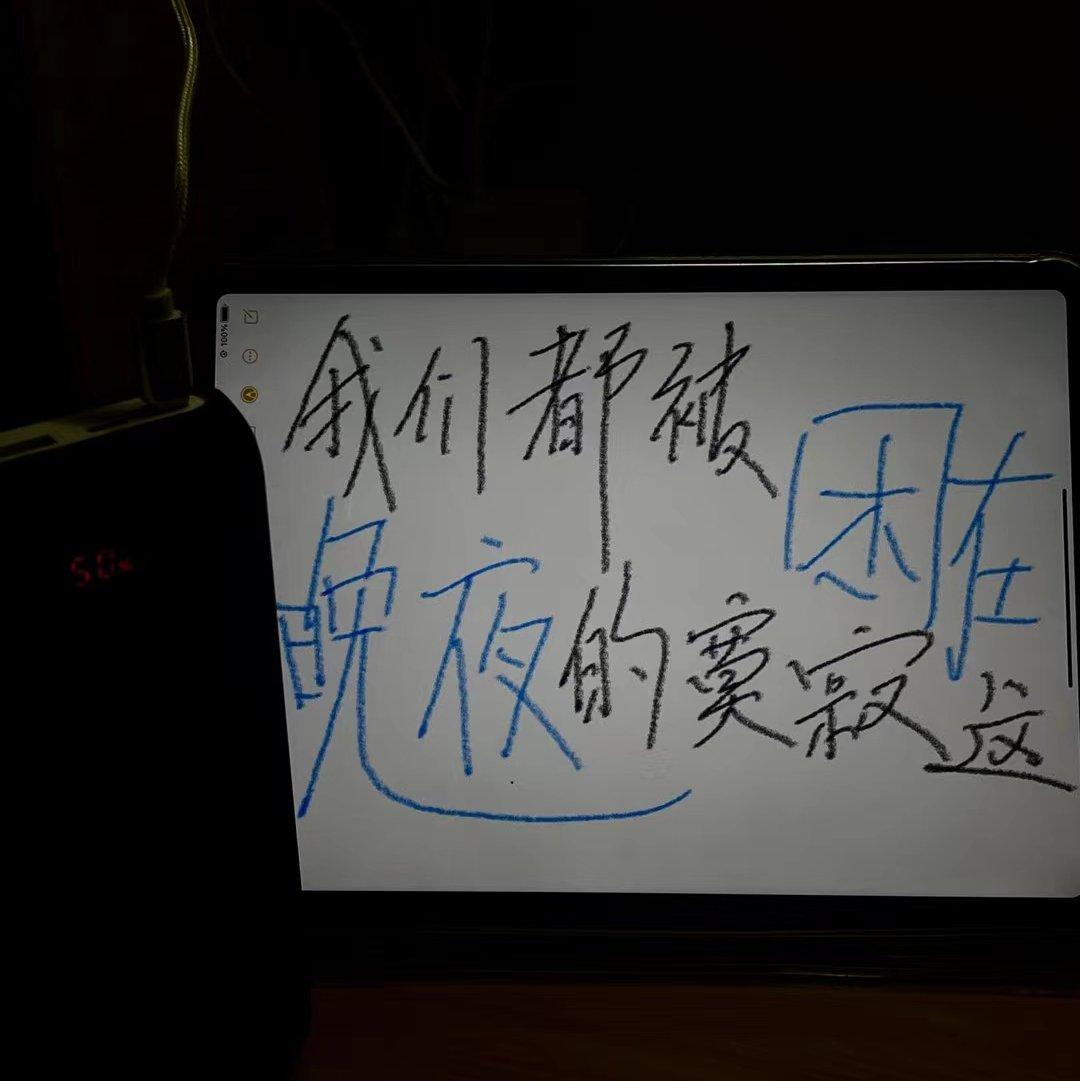 100%
我们都被困在
晚夜的寞寂这
50%